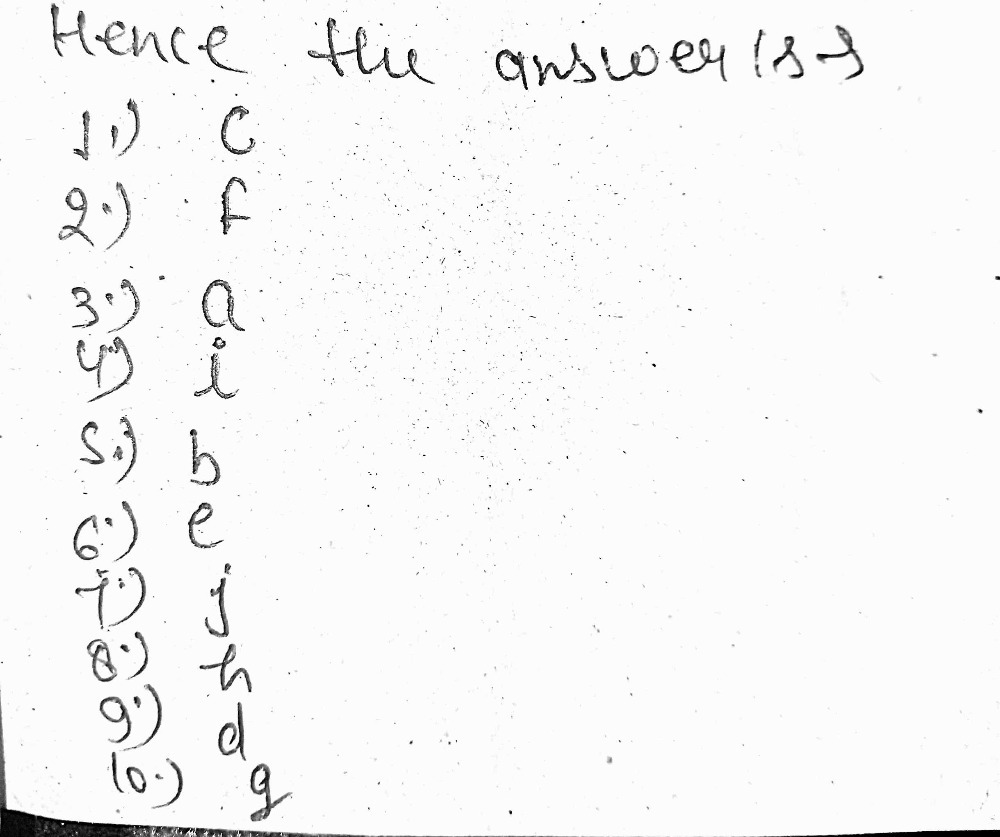 Hence the answer is -
1.) c
2.) f
3.) a
4.) i
5.) b
6.) e
7.) j
8.) h
9.) d
10.) g